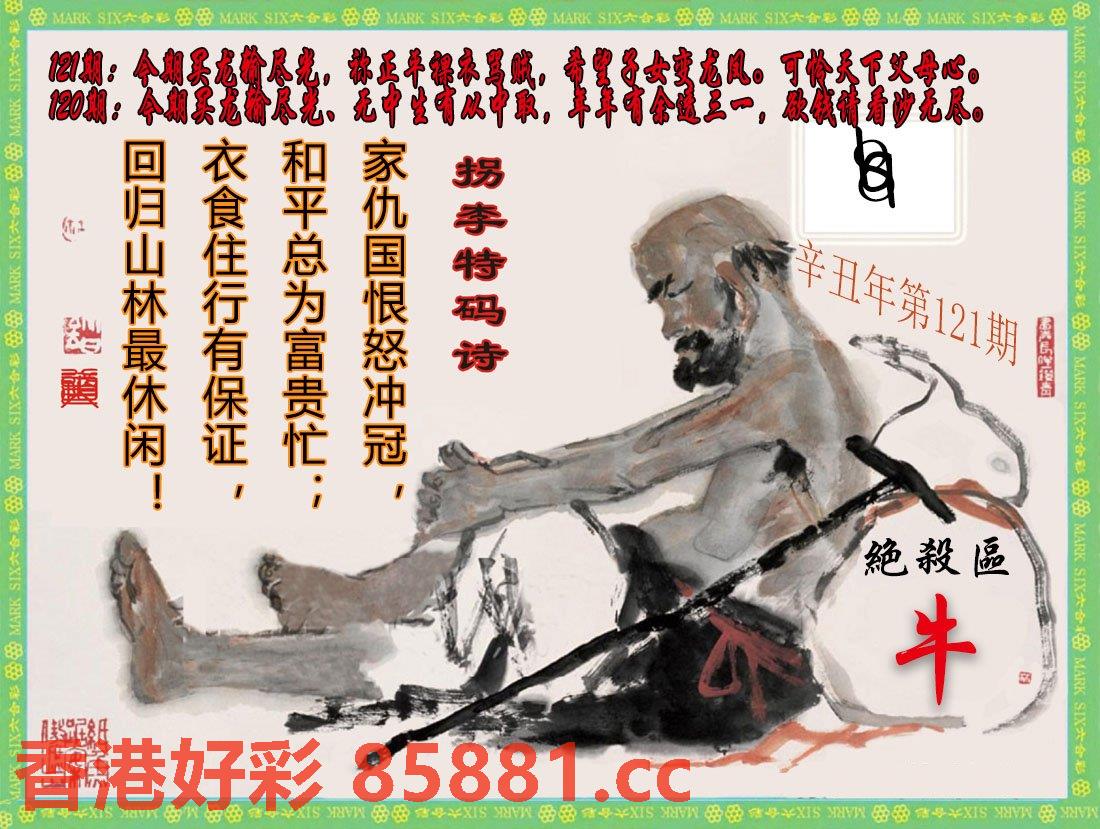 MARK SIX六合彩 MARK SIX六合彩 MARK SIX六合彩 MARK SIX六合彩 MARK SIX六合彩 MARK SIX六合彩 MARK SIX六合彩
121期：今期买龙输尽光，祢正平裸衣骂贼，希望子女变龙凤。可怜天下父母心。
120期：今期买龙输尽光、无中生有从中取，年年有余透三一，欲钱请看沙无尽。
拐李特码诗
家仇国恨怒冲冠，
和平总为富贵忙；
衣食住行有保证，
回归山林最休闲！
辛丑年第121期
絶殺區
牛
香港好彩 85881.cc